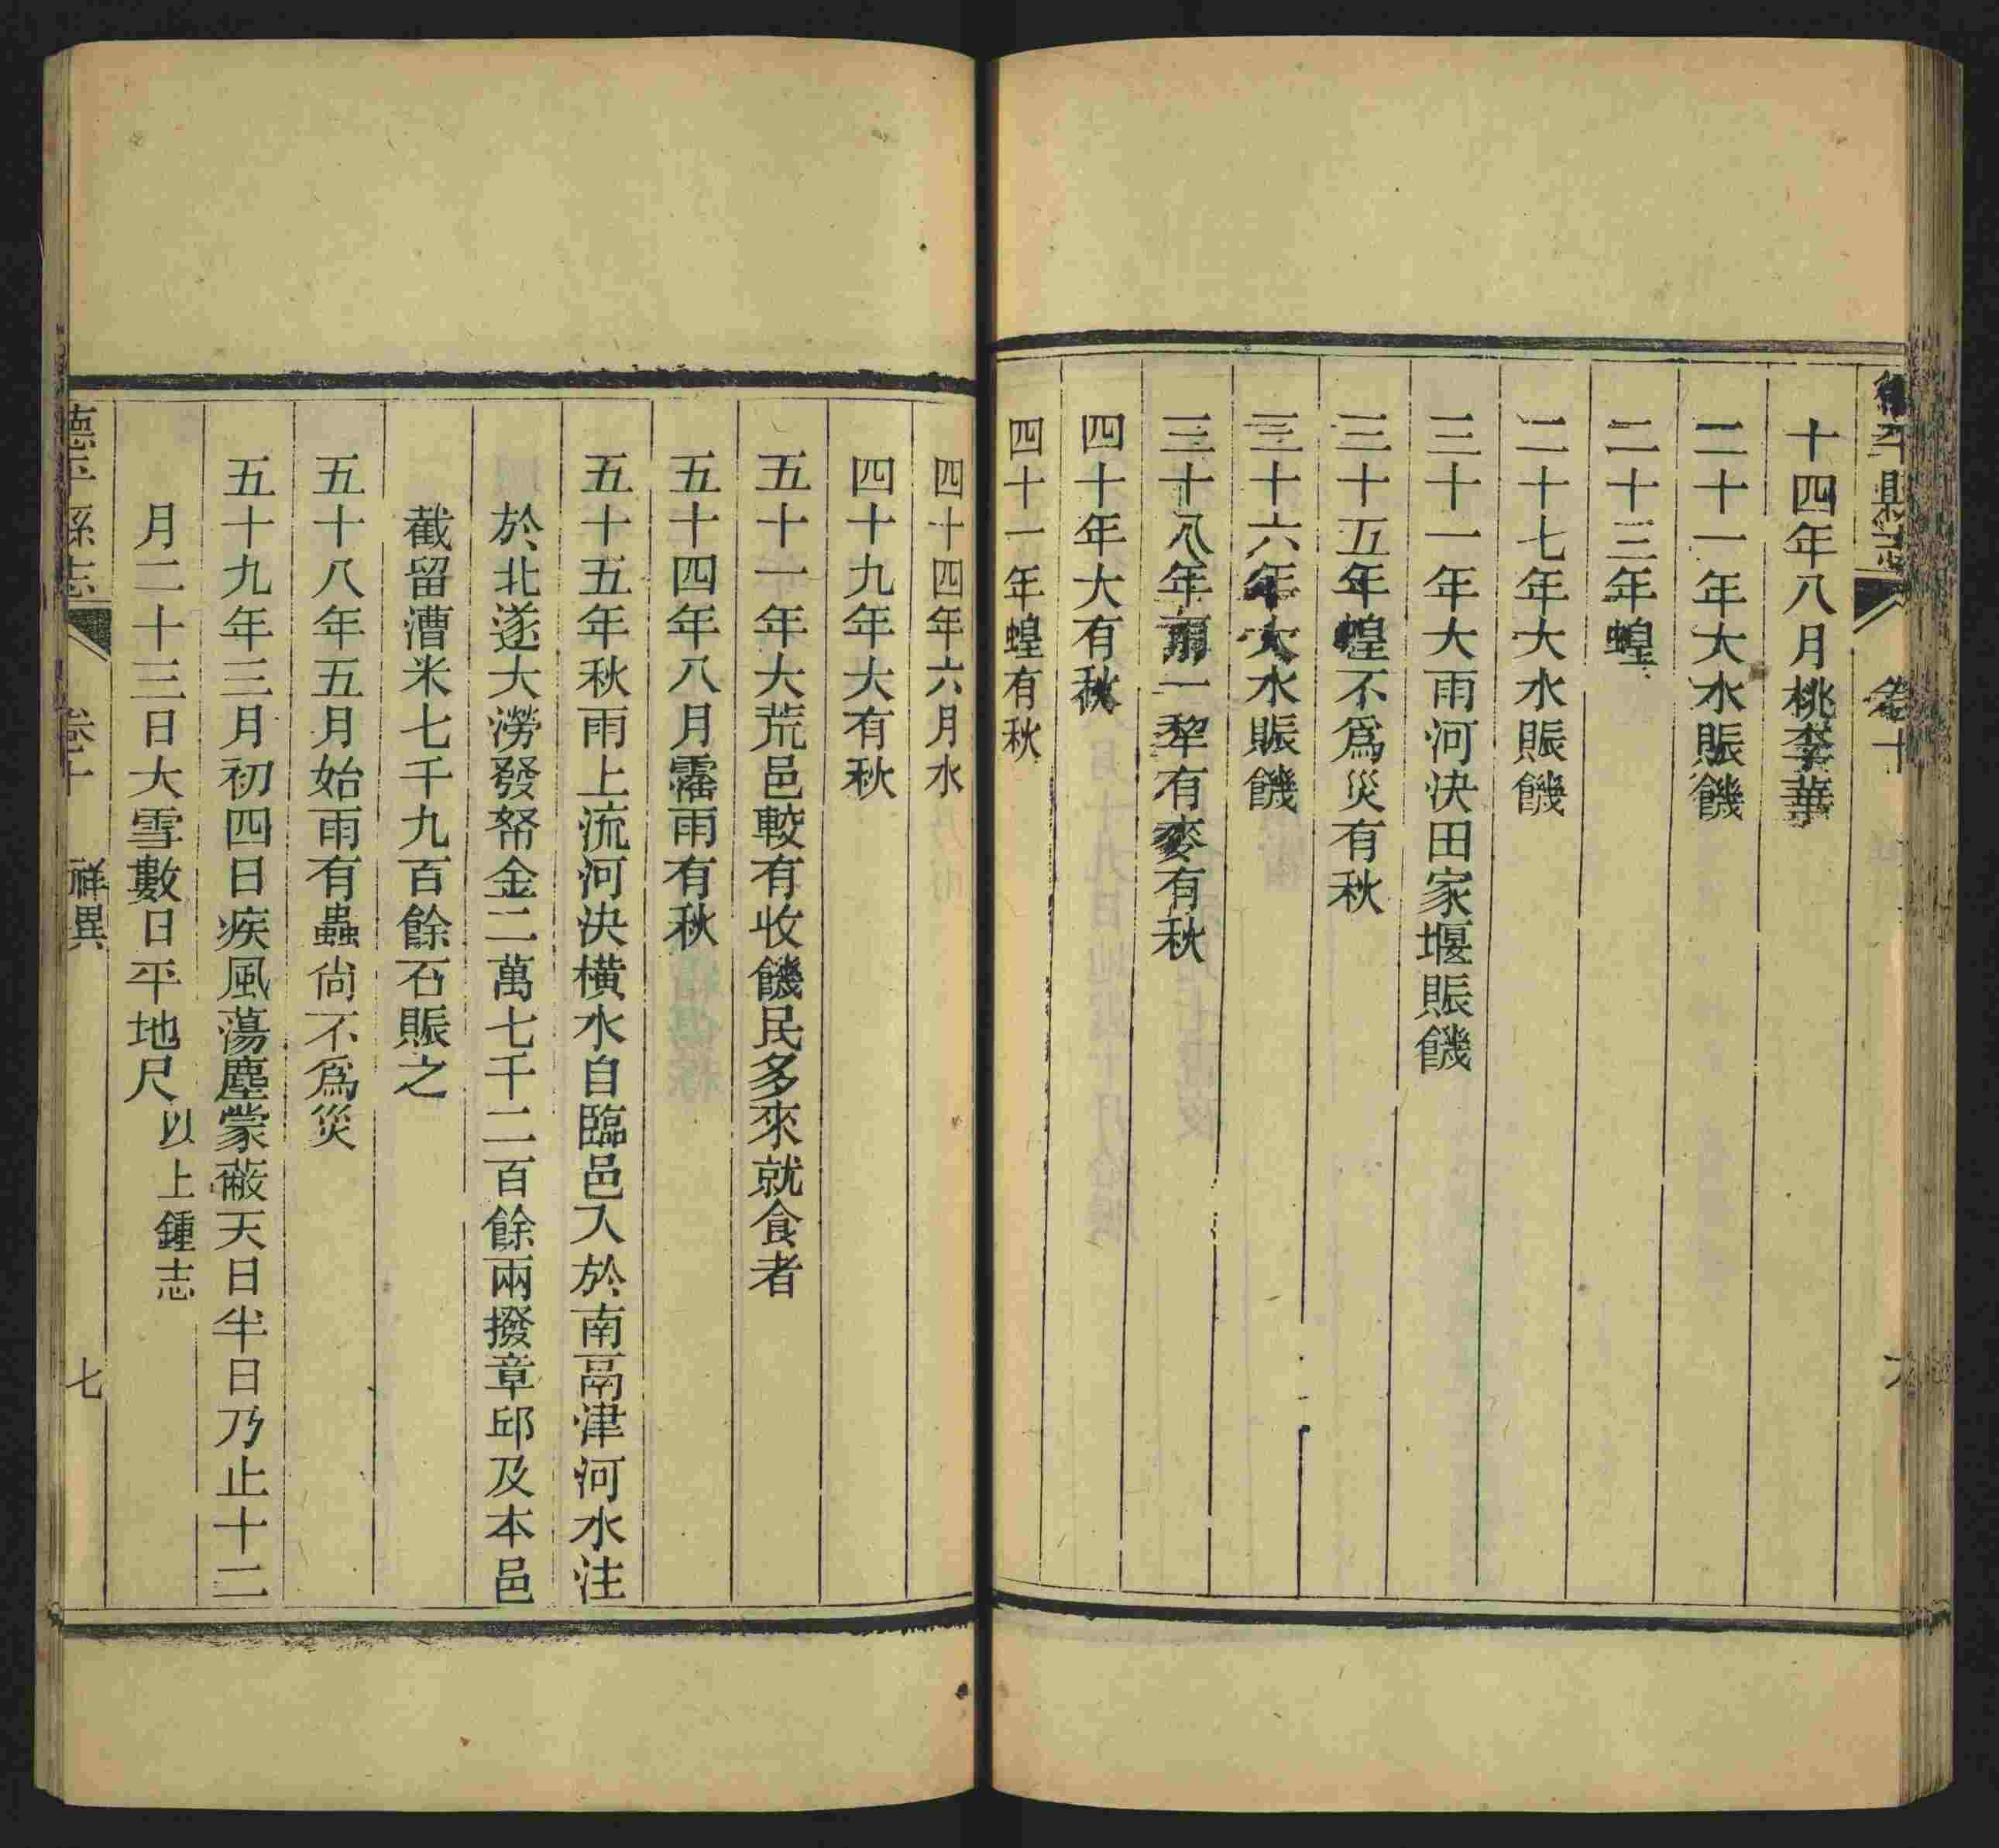 德平縣志
卷十
十四年八月桃李華
二十一年大水賑饑
二十三年蝗
二十七年大水賑饑
三十一年大雨河決田家堰賑饑
三十五年蝗不爲災有秋
三十六年大水賑饑
三十八年雨一犂有麥有秋
四十年大有秋
四十一年蝗有秋
四十四年六月水
四十九年大有秋
五十一年大荒邑較有收饑民多來就食者
五十四年八月霪雨有秋
五十五年秋雨上流河決橫水自臨邑入於南鬲津河水注
於北遂大澇發帑金二萬七千二百餘兩撥章邱及本邑
截留漕米七千九百餘石賑之
五十八年五月始雨有蟲尙不爲災
五十九年三月初四日疾風蕩塵蒙蔽天日半日乃止十二
月二十三日大雪數日平地尺以上鍾志
德平縣志
卷十
祥異
七